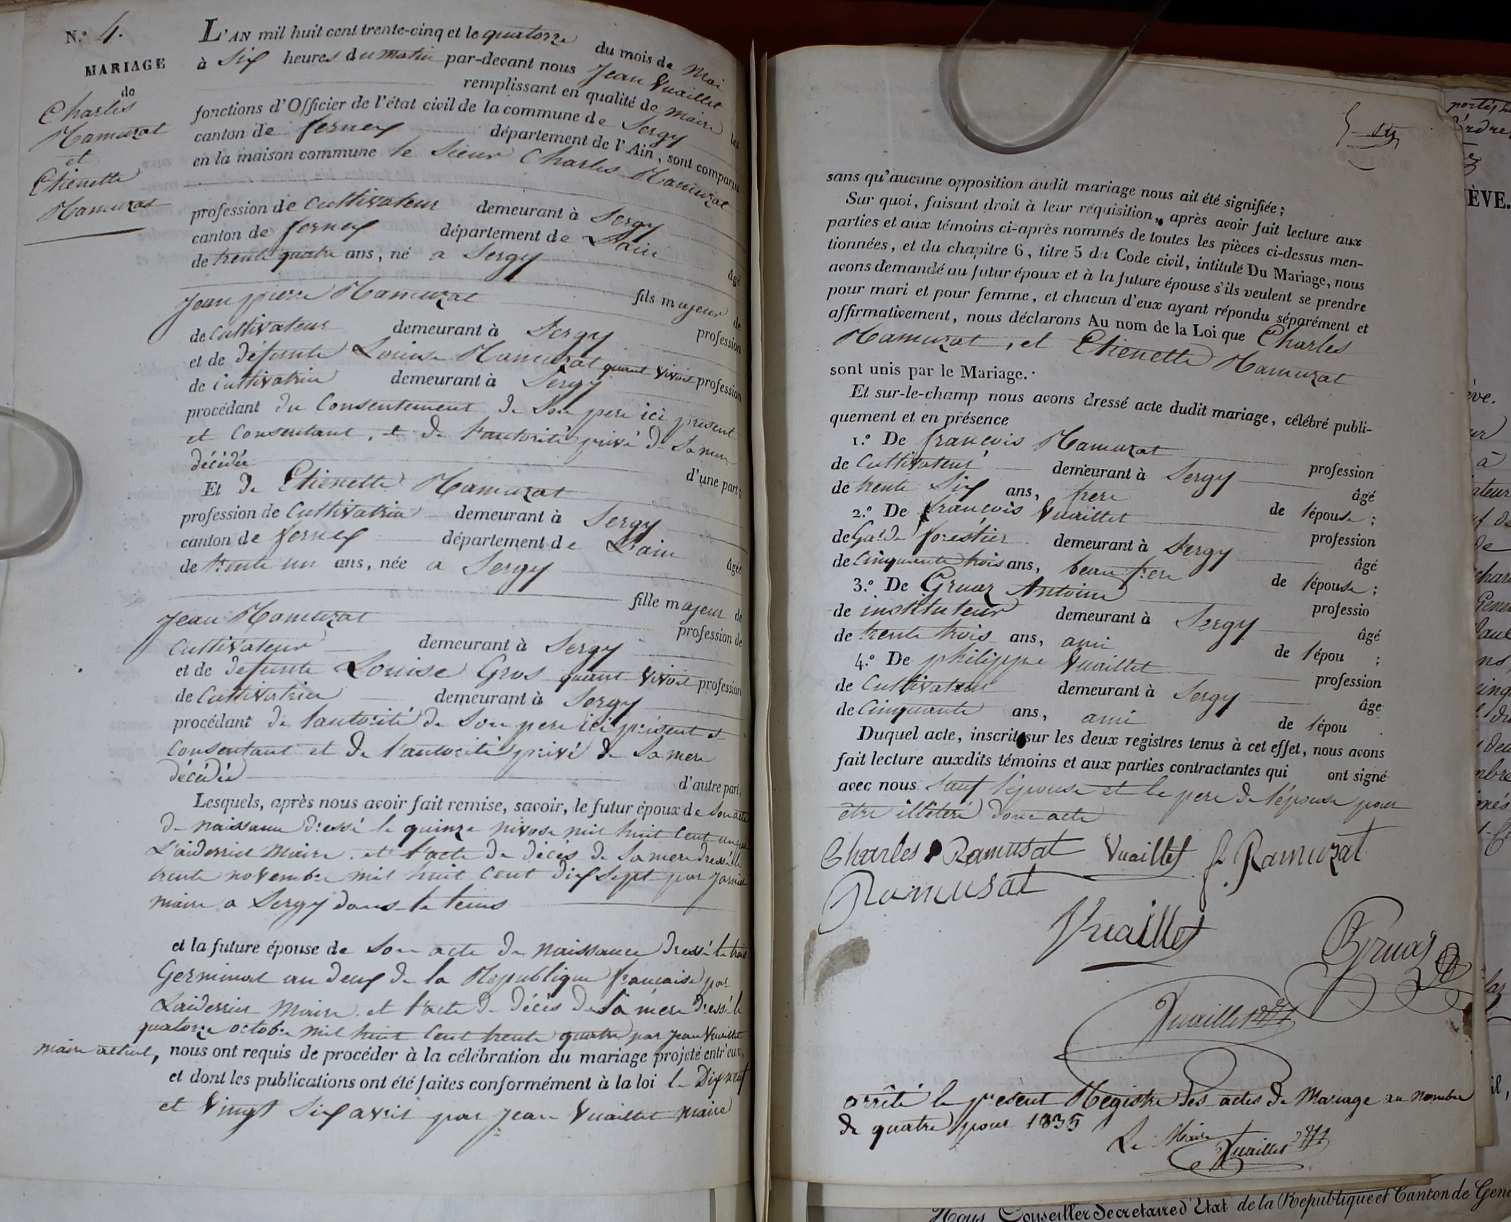 N.º 4.
MARIAGE
de
Charles
Ramuzat
et
Etienette
Ramuzat
L'AN mil huit cent trente-cinq et le quatorze du mois de Mai
à Six heures du matin par-devant nous Jean Vuaillet
remplissant en qualité de Maire les
fonctions d'Officier de l'état civil de la commune de Sergy
canton de ferney département de l'Ain, sont comparus
en la maison commune le Sieur Charles Ramuzat
profession de Cultivateur demeurant à Sergy
canton de ferney département de L'ain
de trente quatre ans, né a Sergy âgé
fils majeur de
Jean pierre Ramuzat profession
de Cultivateur demeurant à Sergy
et de défunte Louise Ramuzat quant vivoit profession
de Cultivatrice demeurant à Sergy
procédant du Consentement de Son pere ici présent
et Consentant, et de l'autorité privé de Sa mere
décédée d'une part;
Et de Etienette Ramuzat
profession de Cultivatrice demeurant à Sergy
canton de ferney département de L'ain
de trente un ans, née a Sergy âgée
fille majeur de
Jean Ramuzat profession de
Cultivateur demeurant à Sergy
et de défunte Louise Gros quant vivoit profession
de Cultivatrice demeurant à Sergy
procédant de l'autorité de Son pere ici présent et
Consentant et de l'autorité privé de Sa mere
décédée d'autre part;
Lesquels, après nous avoir fait remise, savoir, le futur époux de Son acte
de naissance dressé le quinze nivose mil huit Cent
Maire, et l'acte de décès de Sa mere dressé le
trente novembre mil huit Cent dix Sept par
maire a Sergy dans le tems
et la future épouse de Son acte de naissance dressé le trois
Germinal an deux de la République française par
Maire, et l'acte de décès de Sa mère dressé le
quatorze octobre mil huit Cent trente quatre par Jean Vuaillet
maire actuel, nous ont requis de procéder à la célébration du mariage projeté entr'eux,
et dont les publications ont été faites conformément à la loi le Dix neuf
et Vingt Six avril par Jean Vuaillet maire
sans qu'aucune opposition audit mariage nous ait été signifiée;
Sur quoi, faisant droit à leur réquisition, après avoir fait lecture aux
parties et aux témoins ci-après nommés de toutes les pièces ci-dessus men-
tionnées, et du chapitre 6, titre 5 du Code civil, intitulé Du Mariage, nous
avons demandé au futur époux et à la future épouse s'ils veulent se prendre
pour mari et pour femme, et chacun d'eux ayant répondu séparément et
affirmativement, nous déclarons Au nom de la Loi que Charles
Ramuzat, et Etienette Ramuzat
sont unis par le Mariage.
Et sur-le-champ nous avons dressé acte dudit mariage, célébré publi-
quement et en présence
1.º De françois Ramuzat profession
de Cultivateur demeurant à Sergy âgé
de trente Six ans, frere de l'épouse;
2.º De françois Vuaillet profession
de Garde forestier demeurant à Sergy âgé
de Cinquante trois ans, beau frere de l'épouse;
3.º De Gruaz Antoine professio
de instituteur demeurant à Sergy âgé
de trente trois ans, ami de l'épou ;
4.º De philippe Vuaillet profession
de Cultivateur demeurant à Sergy âgé
de Cinquante ans, ami de l'épou
Duquel acte, inscrit sur les deux registres tenus à cet effet, nous avons
fait lecture auxdits témoins et aux parties contractantes qui ont signé
avec nous Sauf l'épouse et le pere de l'épouse pour
être illétéré donc acte
Charles Ramusat Vuaillet f. Ramuzat
Ramusat
Vuaillet Gruaz
Vuaillet
arrêté le présent Registre des actes de Mariage au nombre
de quatre pour 1835
Le Maire
Vuaillet
portés
ordre
ÈVE.
Nous Conseiller Secretaire d'Etat de la Republique et Canton de Gen